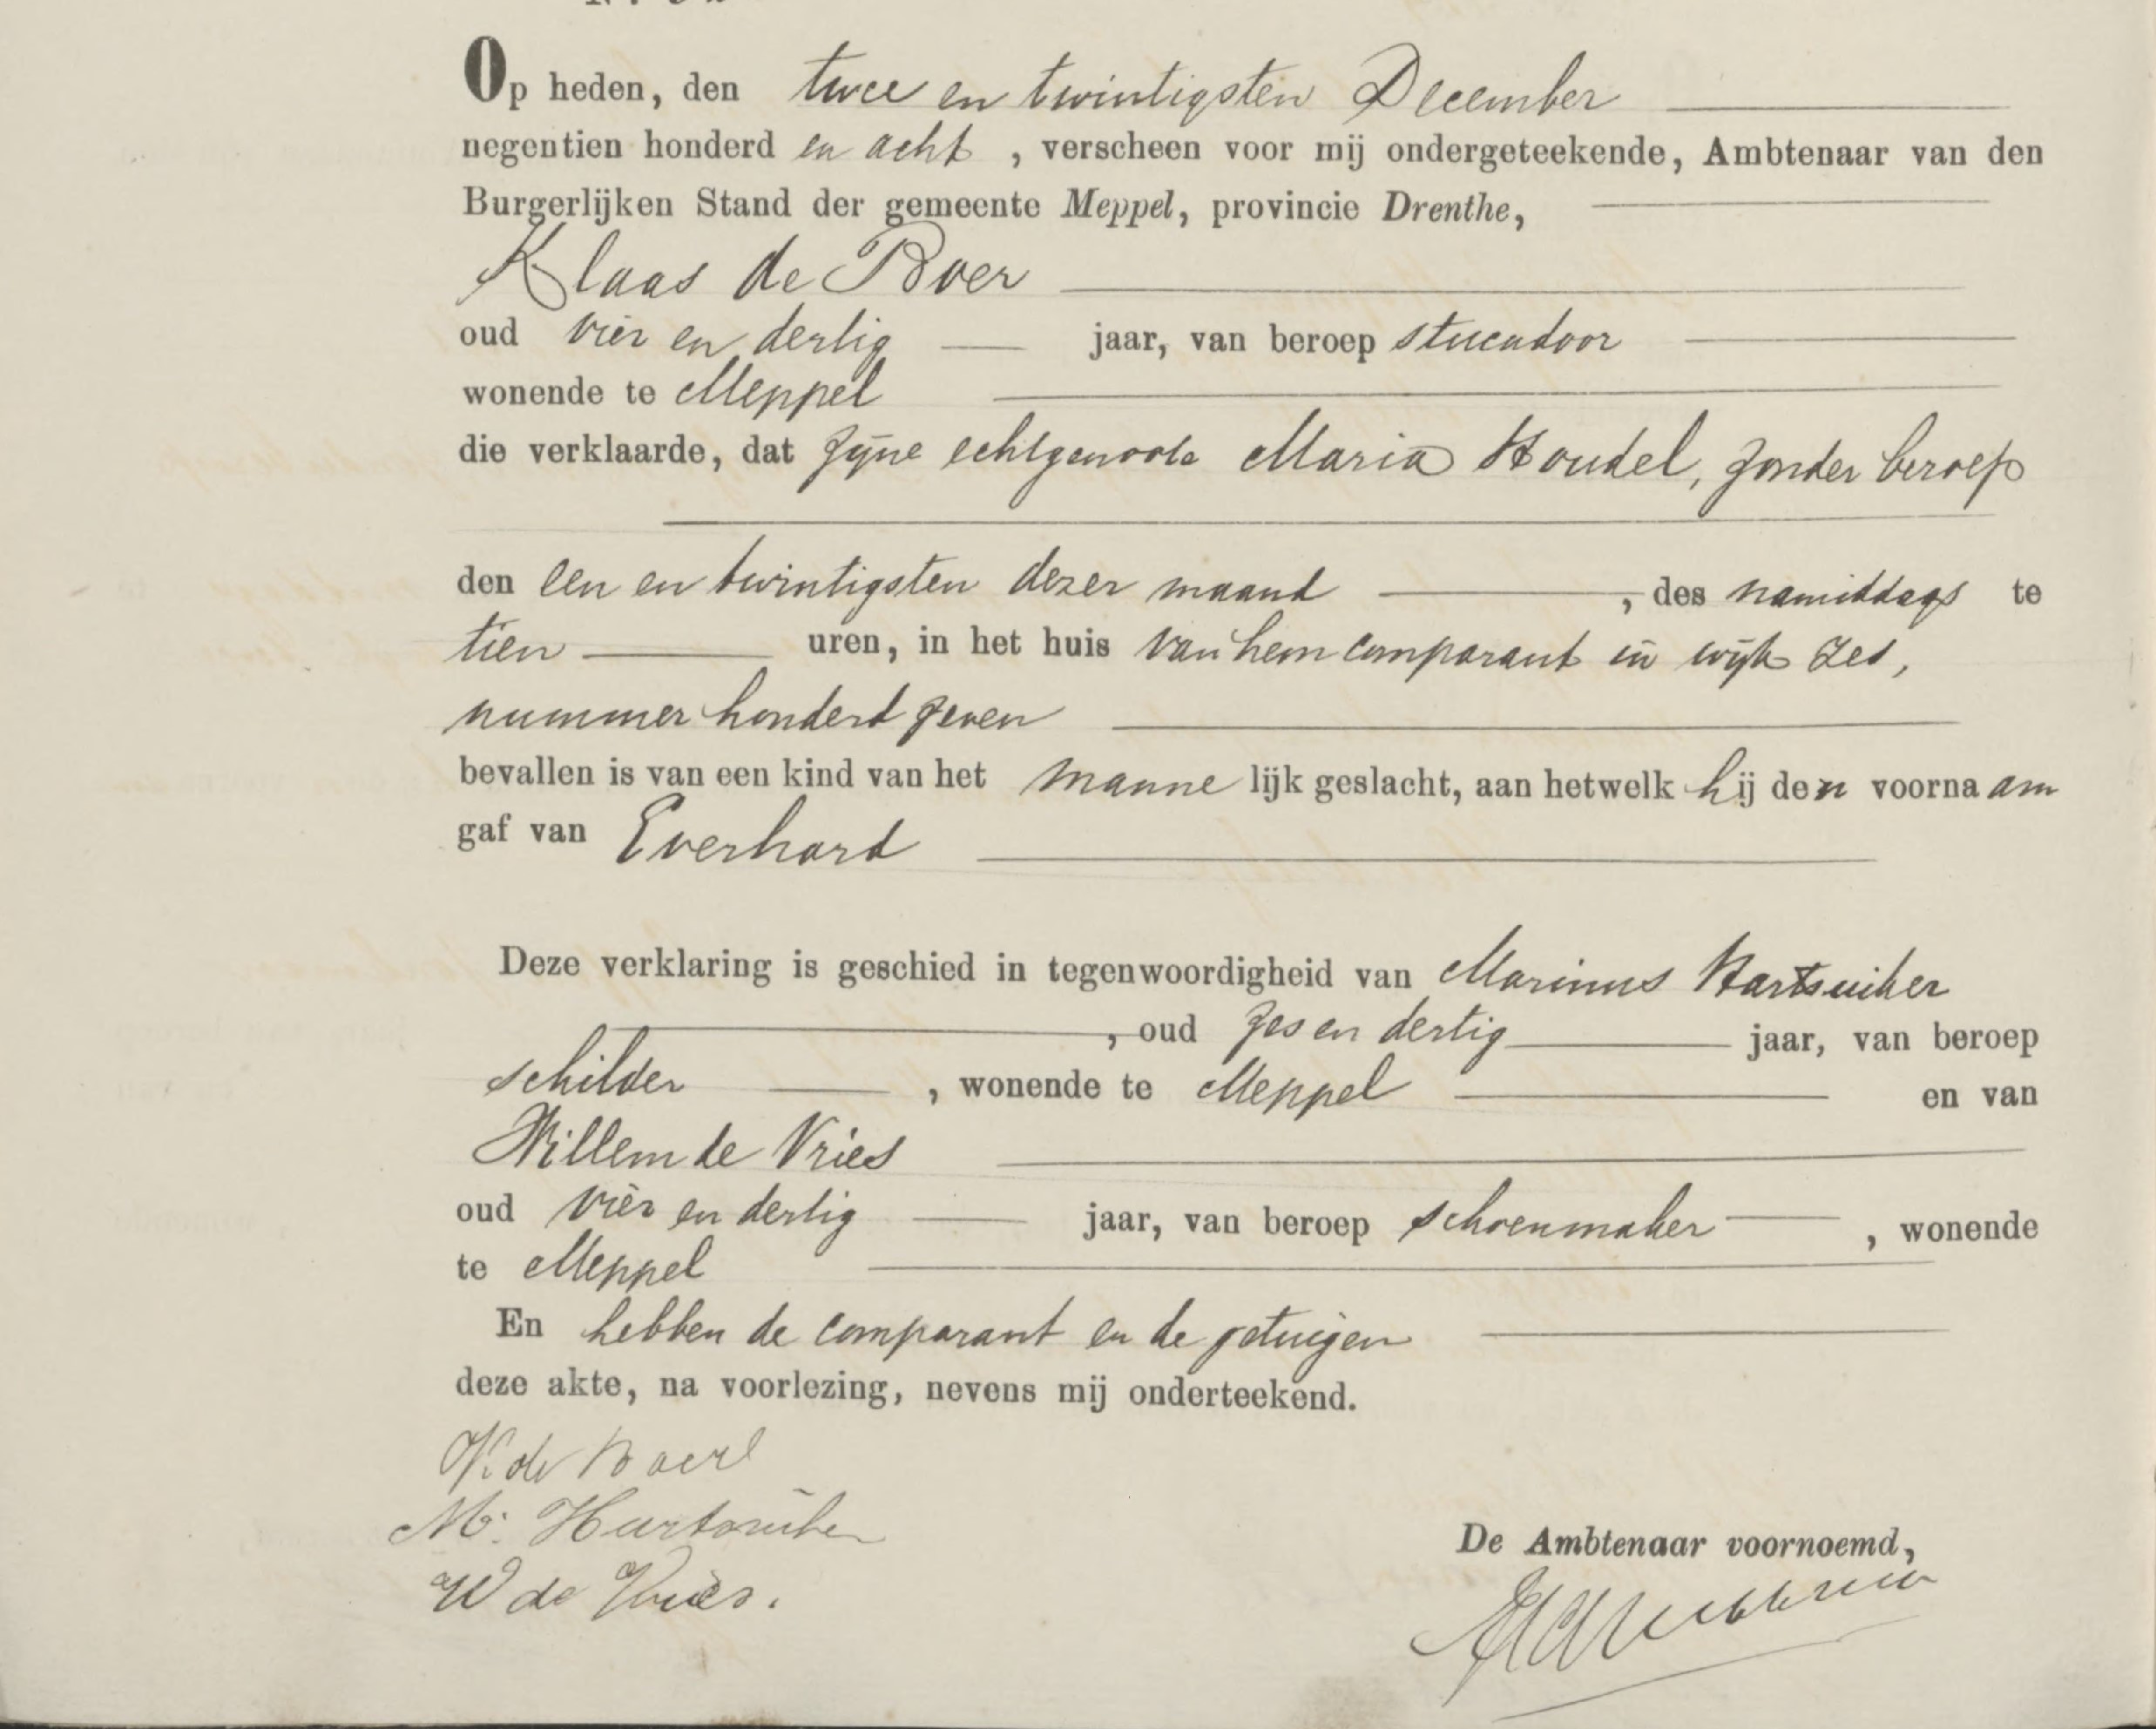 Op heden, den twee en twintigsten December
negentien honderd en acht, verscheen voor mij ondergeteekende, Ambtenaar van den
Burgerlijken Stand der gemeente Meppel, provincie Drenthe,
Klaas de Boer
oud vier en dertig jaar, van beroep stucadoor
wonende te Meppel
die verklaarde, dat zijne echtgenoote Maria Houdel, zonder beroep
den een en twintigsten dezer maand, des namiddags te
tien uren, in het huis van hem comparant in wijk zes,
nummer honderd zeven
bevallen is van een kind van het mannelijk geslacht, aan hetwelk hij den voornaam
gaf van Everhard
Deze verklaring is geschied in tegenwoordigheid van Marinus Hartsuiker
, oud zes en dertig jaar, van beroep
schilder, wonende te Meppel en van
Willem de Vries
oud vier en dertig jaar, van beroep schoenmaker, wonende
te Meppel
En hebben de comparant en de getuigen
deze akte, na voorlezing, nevens mij onderteekend.
K de Boer
M. Hartsuiker
W de Vries.
De Ambtenaar voornoemd,